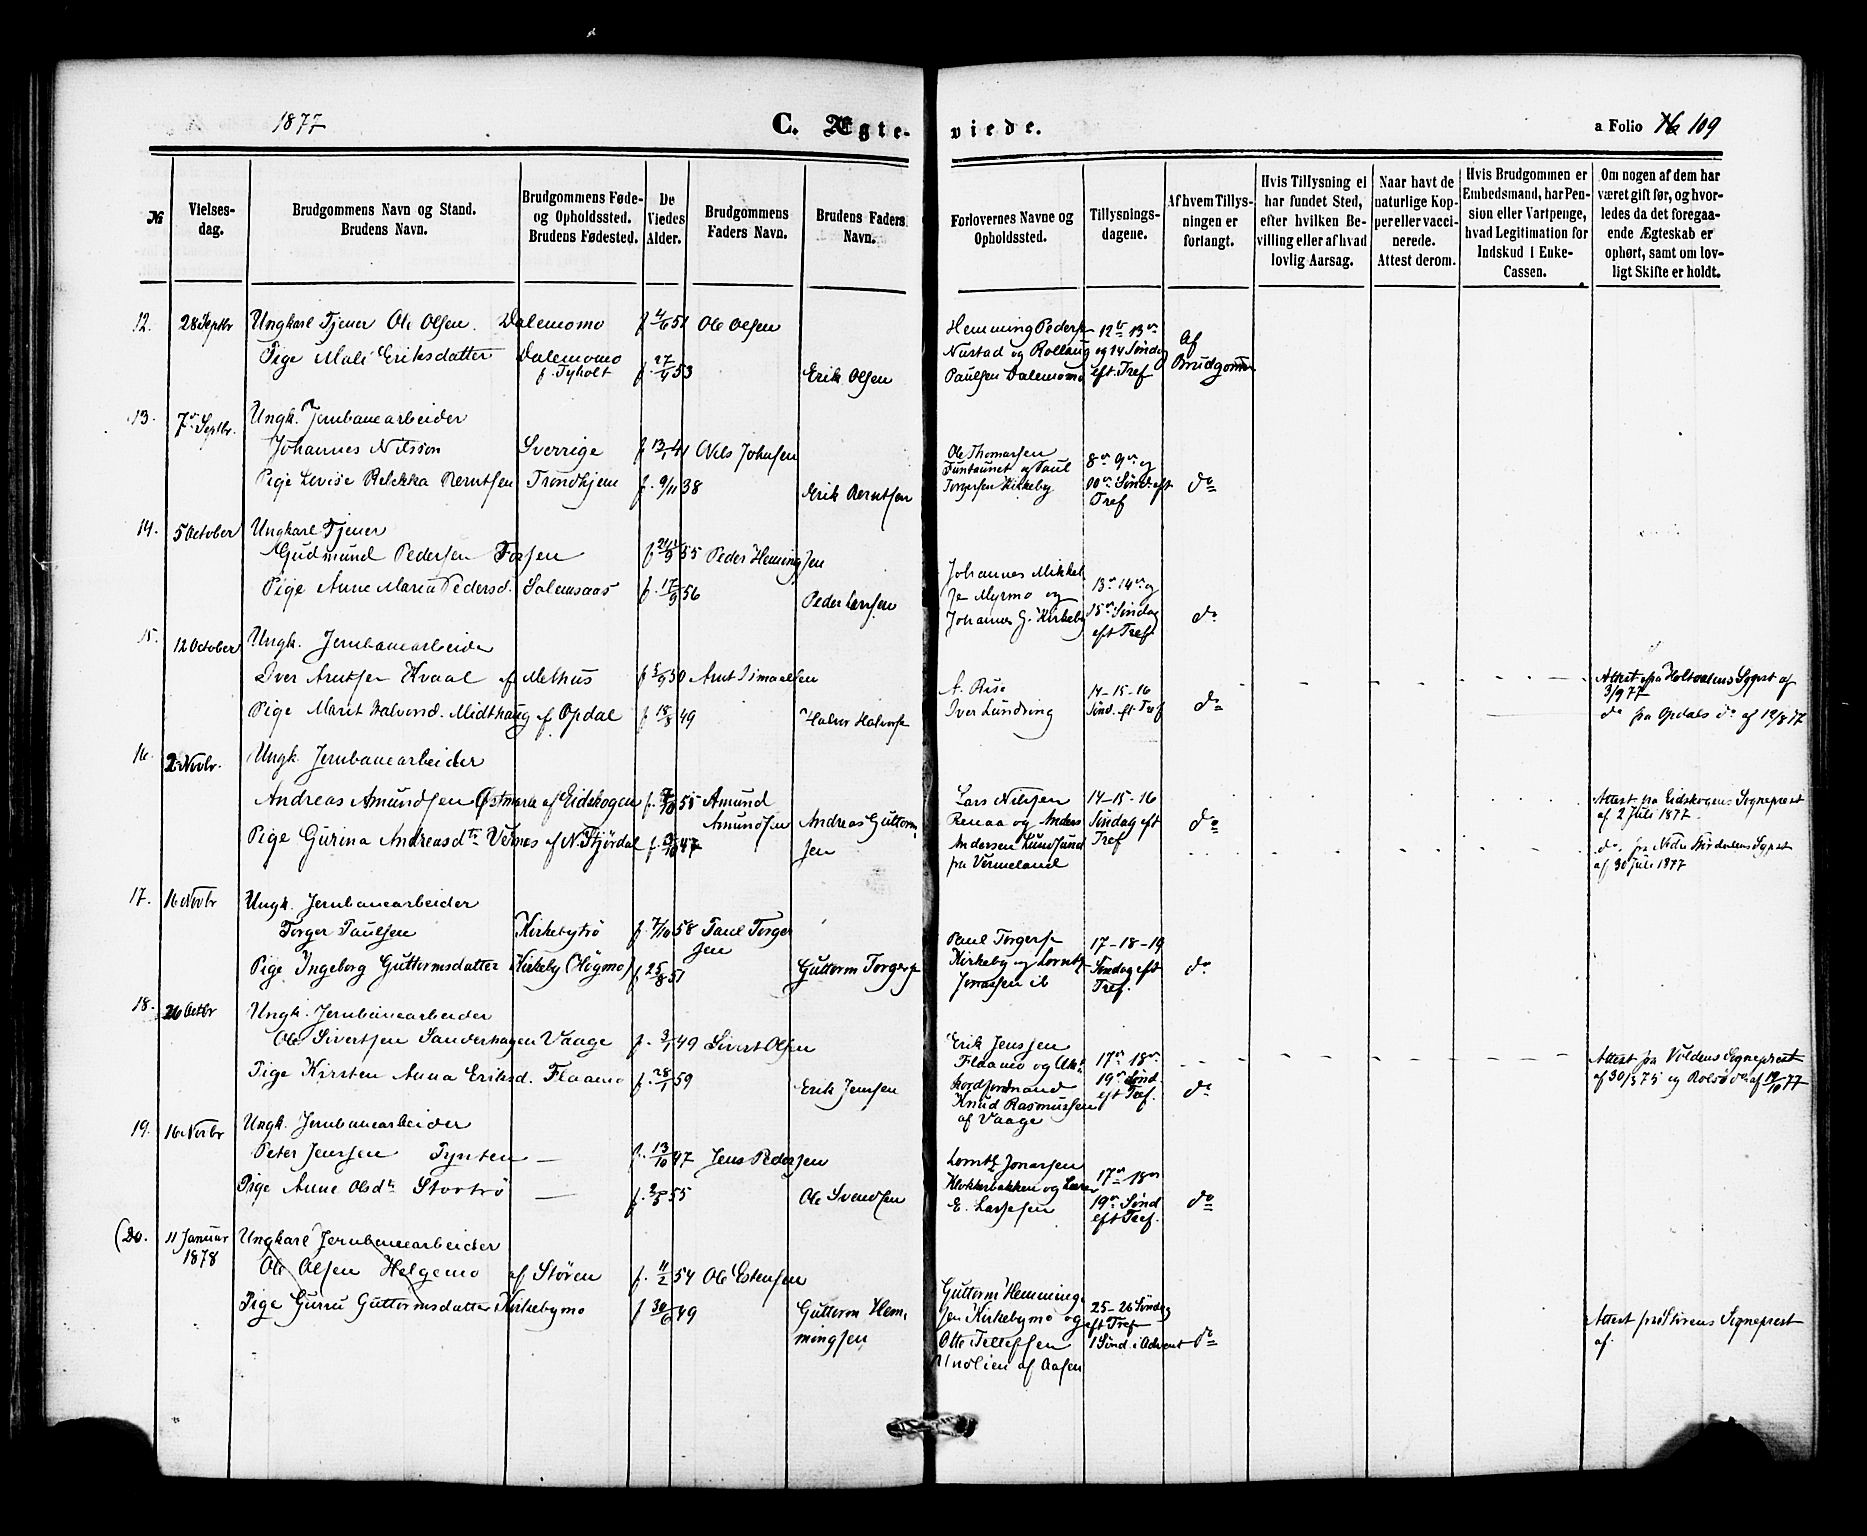 1877
C. Ægte-
viede.
a Folio 109
№
Vielses-
dag.
Brudgommens Navn og Stand.
Brudens Navn.
Brudgommens Føde-
og Opholdssted.
Brudens Fødested.
De
Viedes
Alder.
Brudgommens
Faders Navn.
Brudens Faders
Navn.
Forlovernes Navne og
Opholdssted.
Tillysnings-
dagene.
Af hvem Tillys-
ningen er
forlangt.
Hvis Tillysning ei
har fundet Sted,
efter hvilken Be-
villing eller af hvad
lovlig Aarsag.
Naar havt de
naturlige Kop-
per eller vacci-
nerede.
Attest derom.
Hvis Brudgommen er
Embedsmand, har Pen-
sion eller Vartpenge,
hvad Legitimation for
Indskud i Enke-
Cassen.
Om nogen af dem har
været gift før, og hvor-
ledes da det foregaa-
ende Ægteskab er
ophørt, samt om lov-
ligt Skifte er holdt.
12. 28 Septbr Ungkarl Tjener Ole Olsen. Dalemomo f 4/6 51 Ole Olsen
Pige Mali Eriksdatter Dalemomo f. 27/9 53 Erik Olsen
f. Tyholt
Hemming Peders
Nustad og Rollaug
Paulsen Dalemomo
12te 13de
og 14 Søndag
eft Tref
Af
Brudgommen
13. 7de Septbr. Ungk. Jernbanearbeider
Johannes Nilsson Sverrige f 13/1 41 Nils Johnsen
Pige Lovise Rebekka Berntsen Trondhjem f. 9/11 38 Erik Berntsen
Ole Thomassen
Funtaunet og Paul
Torgersen Kirkeby
8de 9de og
10de Sønd. eft
Tref
do
14. 5 October Ungkarl Tjener
Gudmund Pedersen Fossen f 55 Peder Hemingsen
Pige Anne Maria Pedersd. Solemsaas f. 17/9 56 Peder Larssen
Johannes Mikkel
sen Myrmo og
Johannes G. Kirkeby
13de 14de og
15de Søndag
eft Tref
do
15. 12 October Ungk. Jernbanearbeider
Iver Arntsen Kvaal af Melhus f 5/9 50 Arnt Ismaelsen
Pige Marit Halvorsd. Midthaug af Opdal f 18/8 49 Halvor Halvors
A. Rise
Iver Lundring
14-15-16
Sønd. eft Tref
do
Attest fra Holtaalens Sgprst af
3/9 77
do fra Opdals do af 12/8 77
16. 2 Novbr. Ungk. Jernbanearbeider
Andreas Amundsen Østmark af Eidskogen f. 55 Amund
Amundsen
Pige Gurina Andreasdtr Værnes af N. Stjørdal f. 47 Andreas Guttorm
sen
Lars Nilsen
Renaa og Anders
Andersen Lundsund
fra Vermeland
14-15-16
Søndag eft
Tref
do
Attest fra Eidskogens Sogneprest
af 2 Juli 1877
do. fra Nedre Stjørdalens Sgprst
af 30 Juli 1877
17. 16 Novbr Ungk. Jernbanearbeider
Torger Paulsen Kirkebytrø f. 7/10 58 Paul Torger
sen
Pige Ingeborg Guttormsdatter Kirkeby (Høgmo) f 25/8 51 Guttorm Torgers
Paul Torgers
Kirkeby og Lorntz
Jonassen ib
17-18-19
Søndag eft
Tref.
do
18. 26 Octbr Ungk. Jernbanearbeider
Ole Sivertsen Sanderhagen Vaage f. 3/1 49 Sivert Olsen
Pige Kirsten Anna Eriksd. Flaamo f. 28/1 59 Erik Jenssen
Erik Jenssen
Flaamo og Ak-
kordformand
Knud Rasmussen
af Vaage
17de 18de
19de Sønd.
eft Tref.
do
Attest fra Voldens Sogneprest
af 30/3 75 og Rolsø do af 10/10 77
19. 16 Novbr Ungk. Jernbanearbeider
Peter Jenssen Tynset — f. 13/10 47 Jens Pedersen
Pige Anne Olsdtr Stortrø — f. 2/8 55 Ole Svendsen
Lorntz Jonassen
Klokkerbakken og Lærer
E. Larssen
17de 18de
19de Sønd
eft Tref.
do
(20. 11 Januar
1878
Ungkarl Jernbanearbeider
Ole Olsen Helgemo af Støren f. 11/2 54 Ole Estensen
Pige Gurru Guttormsdatter Kirkebymo f 30/6 49 Guttorm Hem-
mingsen
Guttorm Hemming-
sen Kirkebymo og
Otte Tellefsen
Undlien af Aasen
25-26 Søndag
eft Tref
1 Sønd. i Advent do
Attest fra Størens Sogneprest
af.